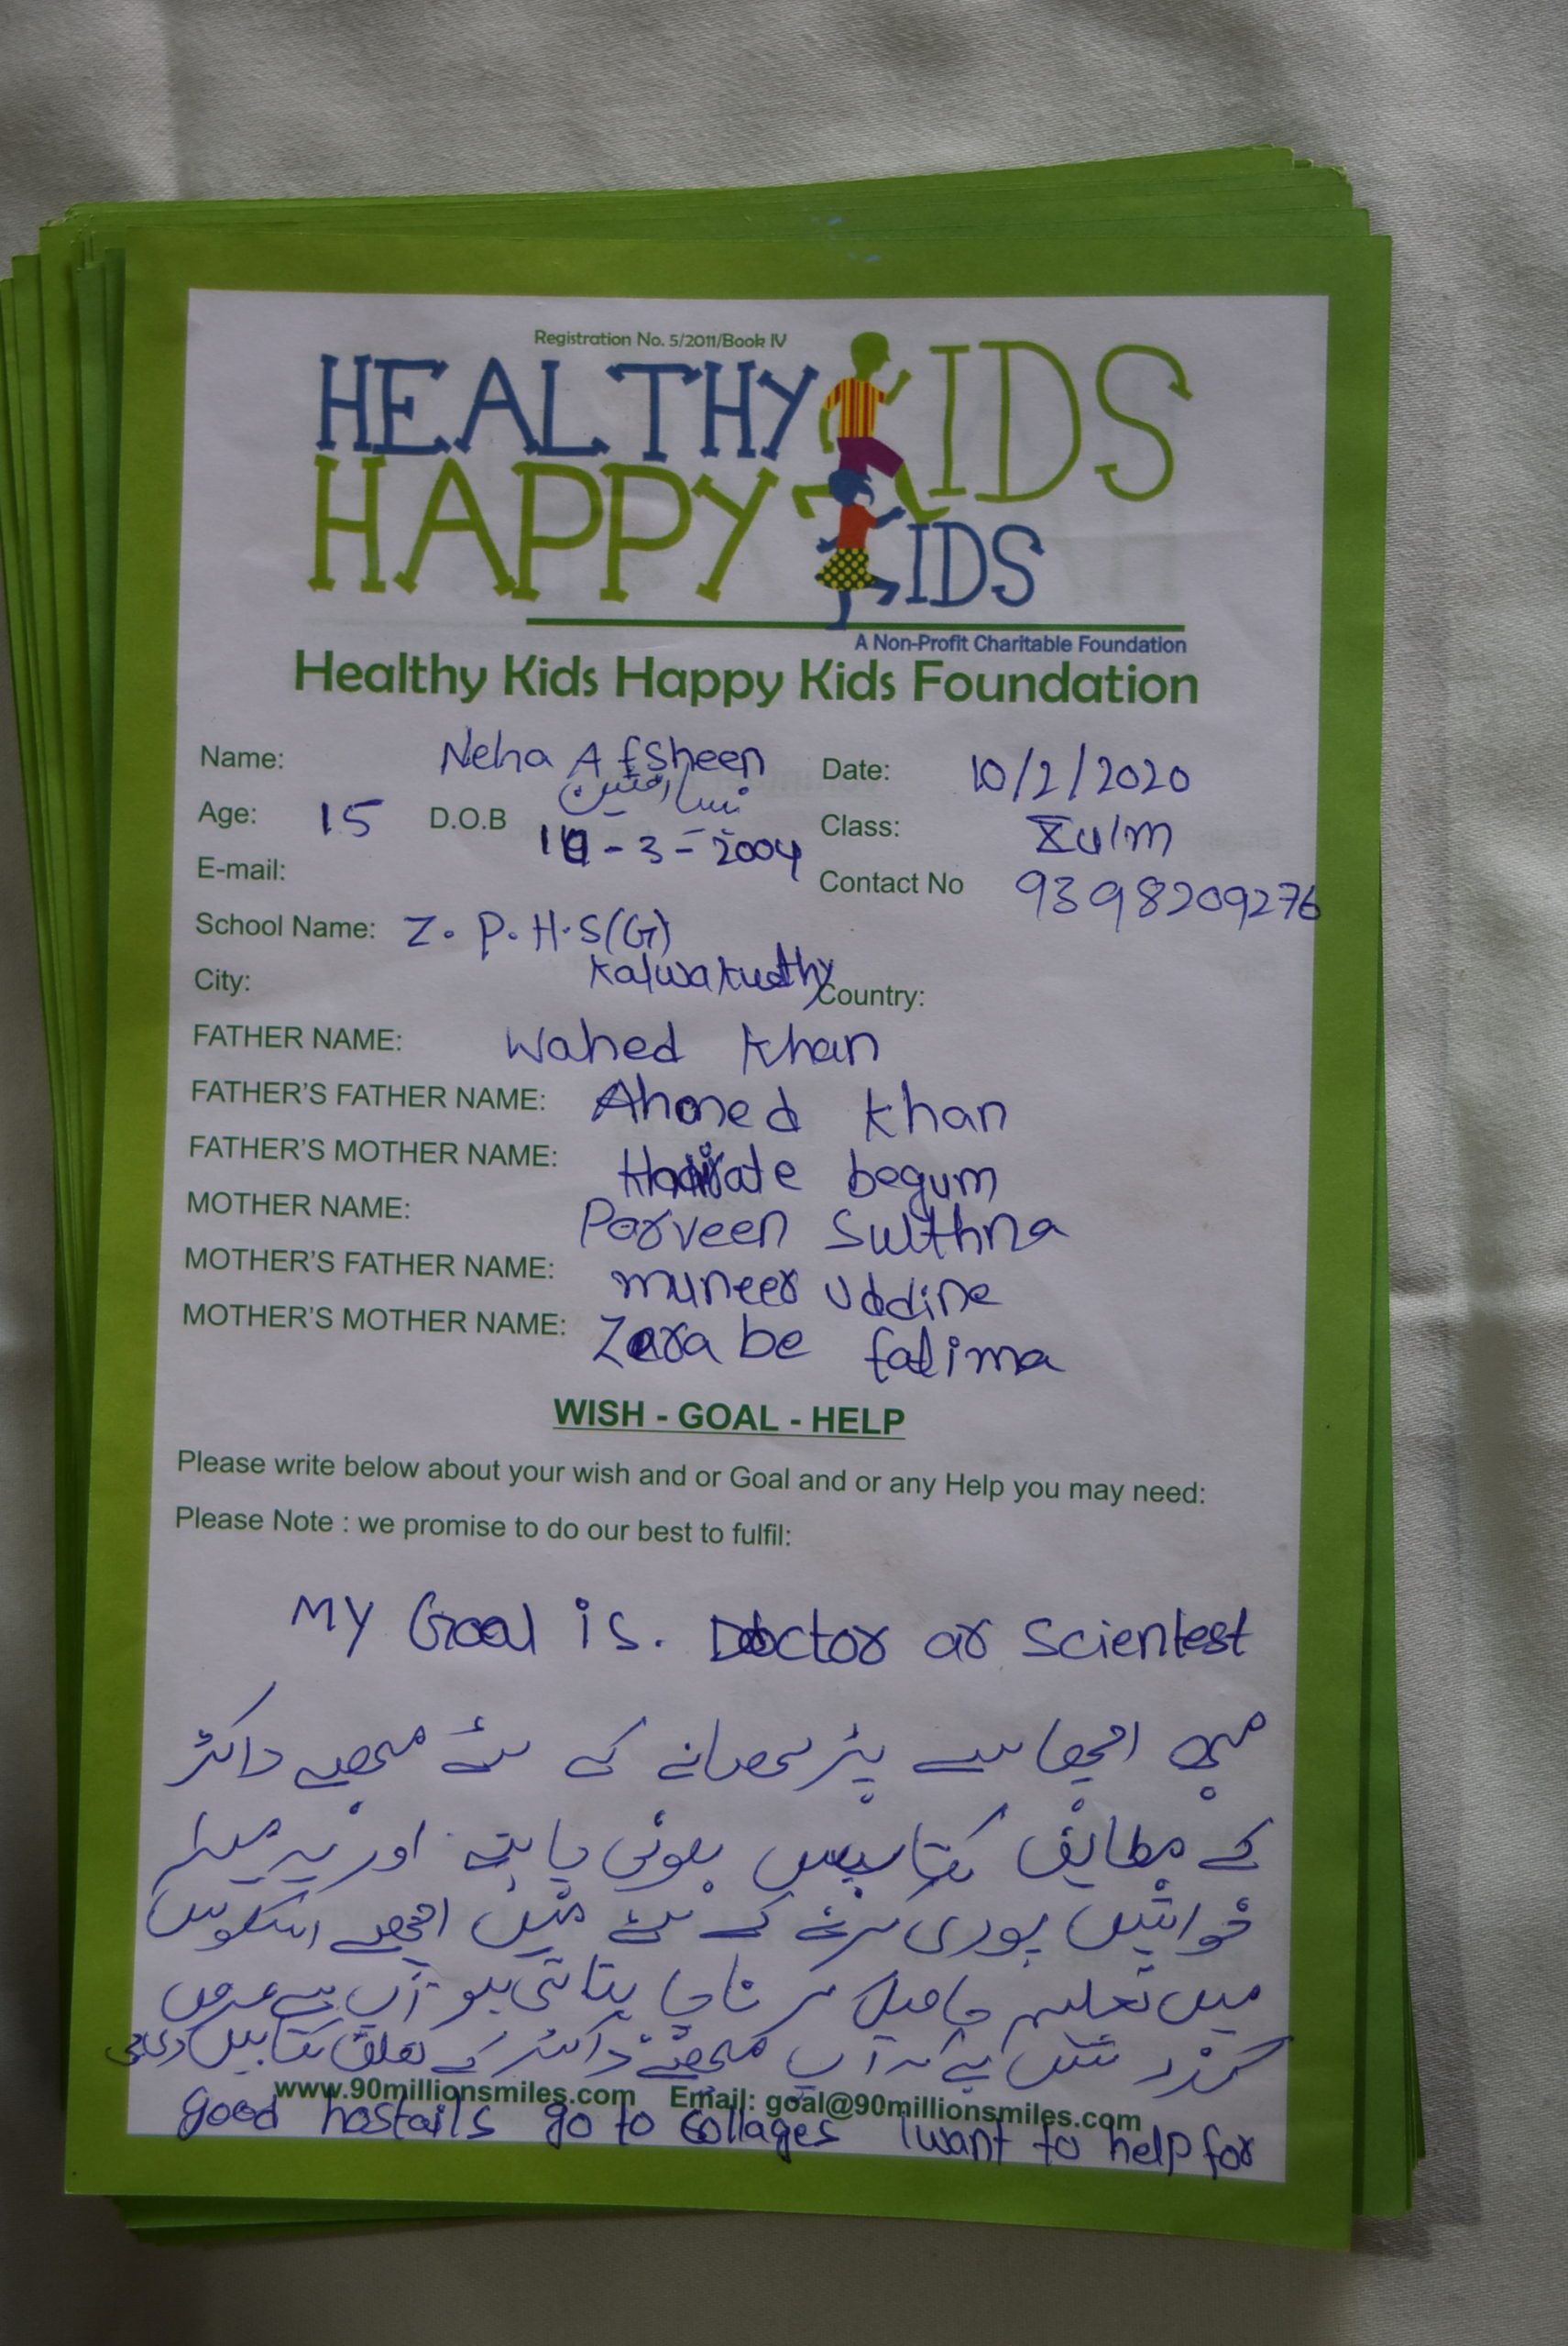 Registration No. 5/2011/Book IV
HEALTHY KIDS
HAPPY KIDS
A Non-Profit Charitable Foundation
Healthy Kids Happy Kids Foundation
Name: Neha Afsheen Date: 10/2/2020
Age: 15 D.O.B 10-3-2004 Class: X u/m
E-mail: Contact No 9398209276
School Name: Z. P. H.S(G)
City: Kalwakurthy Country:
FATHER NAME: Wahed Khan
FATHER'S FATHER NAME: Ahmed Khan
FATHER'S MOTHER NAME: begum
MOTHER NAME: Parveen Sulthna
MOTHER'S FATHER NAME: muneer Uddine
MOTHER'S MOTHER NAME: Zara be fatima
WISH - GOAL - HELP
Please write below about your wish and or Goal and or any Help you may need:
Please Note : we promise to do our best to fulfil:
My Goal is. Doctor ar Scientest
اچھا سے پڑھانے کی لئے مجھے داکٹر
کے مطابق کتابیں ہونی چاہئے اور یہ میرا
خواہش پوری کرنے کے لئے میں اچھے اسکول
میں تعلیم حاصل کرنا چاہتی ہو آپ سے
آپ مجھے ڈاکٹر کے تعلق کتابیں
www.90millionsmiles.com Email: goal@90millionsmiles.com
good hostails go to collages I want to help for